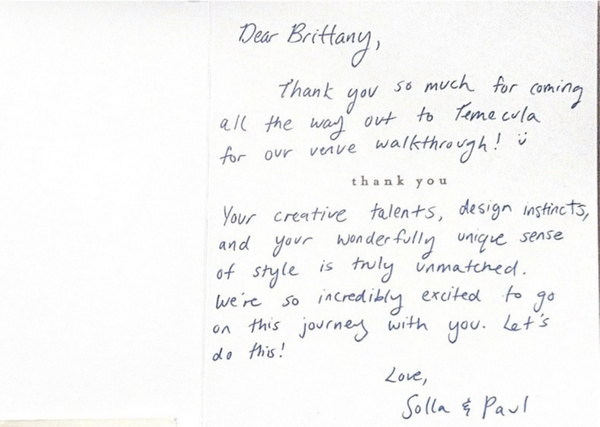 Dear Brittany,
Thank you so much for coming
all the way out to Temecula
for our venue walkthrough! ü
thank you
Your creative talents, design instincts,
and your wonderfully unique sense
of style is truly unmatched.
We're so incredibly excited to go
on this journey with you. Let's
do this!
Love,
Solla & Paul